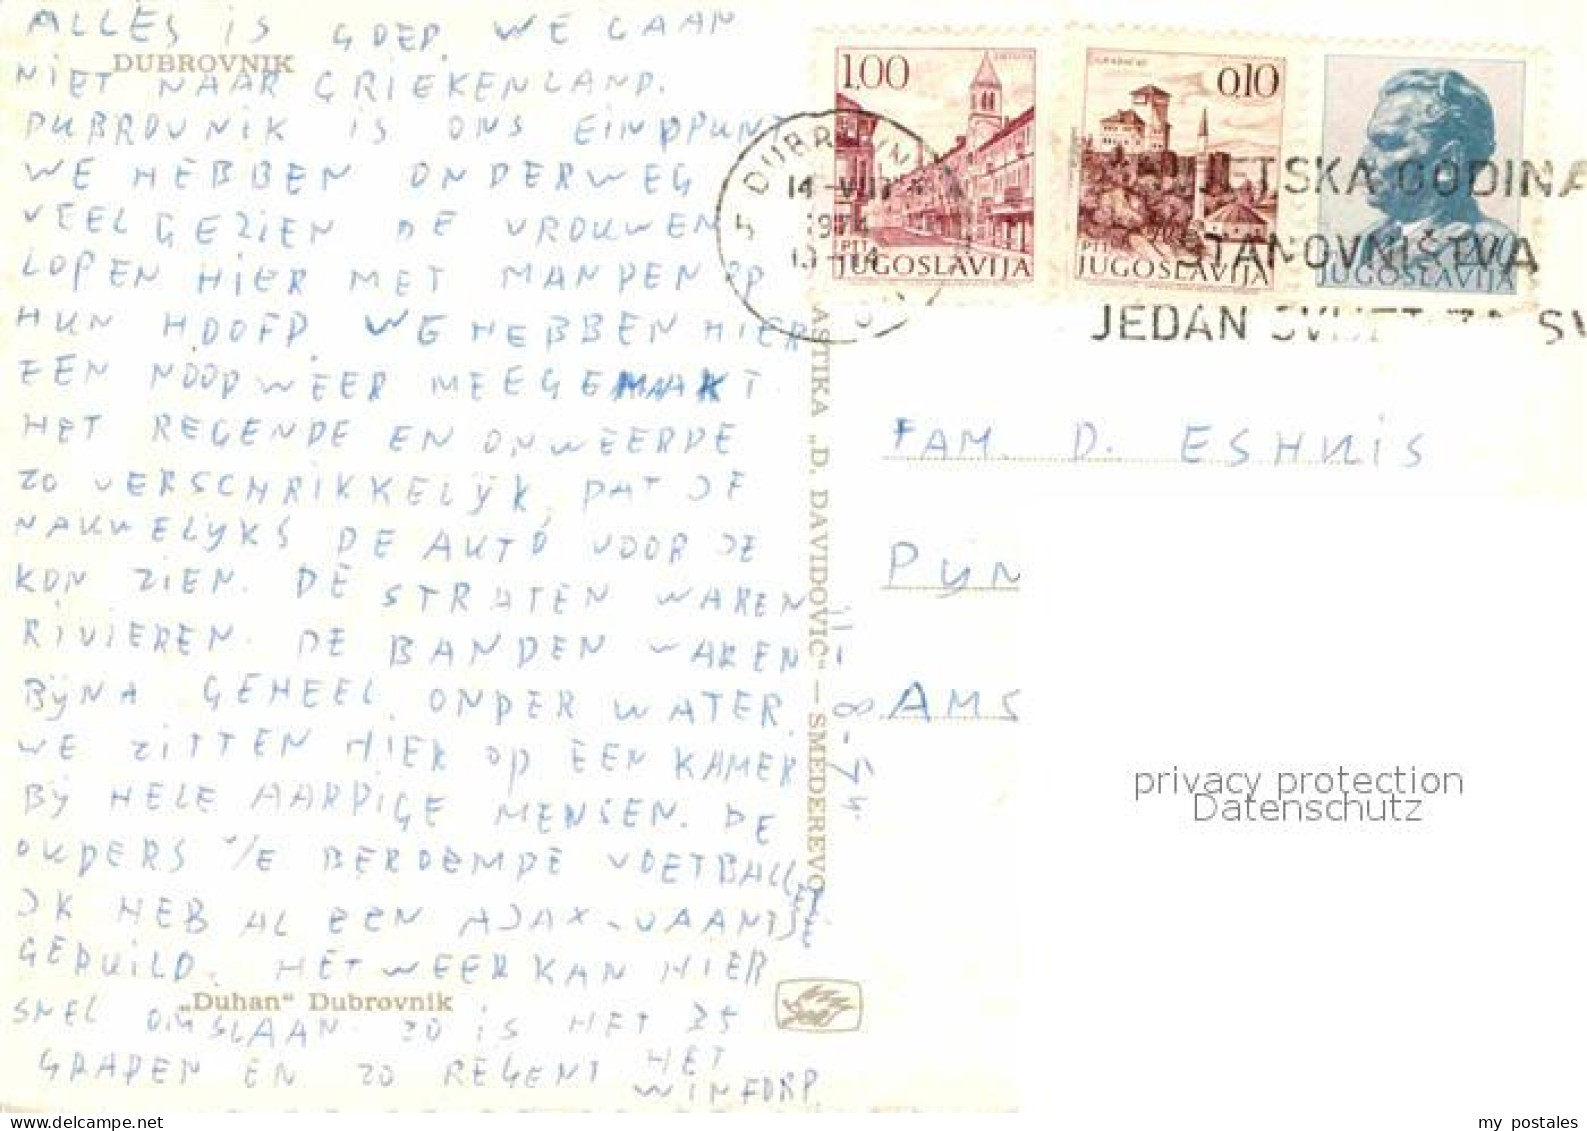 ALLES IS GOED. WE GAAN
DUBROVNIK
NIET NAAR GRIEKENLAND.
DUBROVNIK IS ONS EINDPUNT
WE HEBBEN ONDERWEG
VEEL GEZIEN DE VROUWEN
LOPEN HIER MET MANDEN OP
HUN HOOFD. WE HEBBEN HIER
EEN NOODWEER MEEGEMAAKT.
HET REGENDE EN ONWEERDE
ZO VERSCHRIKKELIJK, DAT JE
NAUWELIJKS DE AUTO VOOR JE
KON ZIEN. DE STRATEN WAREN
RIVIEREN. DE BANDEN WAREN
BIJNA GEHEEL ONDER WATER.
WE ZITTEN HIER OP EEN KAMER
BIJ HELE AARDIGE MENSEN. DE
OUDERS V/E BEROEMDE VOETBALLER
IK HEB AL EEN AJAX-VAANTJE
GERUILD. HET WEER KAN HIER
„Duhan“ Dubrovnik
SNEL OMSLAAN. ZO IS HET 35
GRADEN EN ZO REGENT HET
WINFDRP.
ASTIKA „D. DAVIDOVIĆ“ — SMEDEREVO
1.00
PTT
JUGOSLAVIJA
0,10
GRADAČAC
PTT
JUGOSLAVIJA
JUGOSLAVIJA
5 DUBROVNIK
14-VIII
1974
13-14
SVJETSKA GODINA
STANOVNIŠTVA
JEDAN SVIJET ZA SV
FAM. D. ESHUIS
PIJN
AMS
privacy protection
Datenschutz
my postales